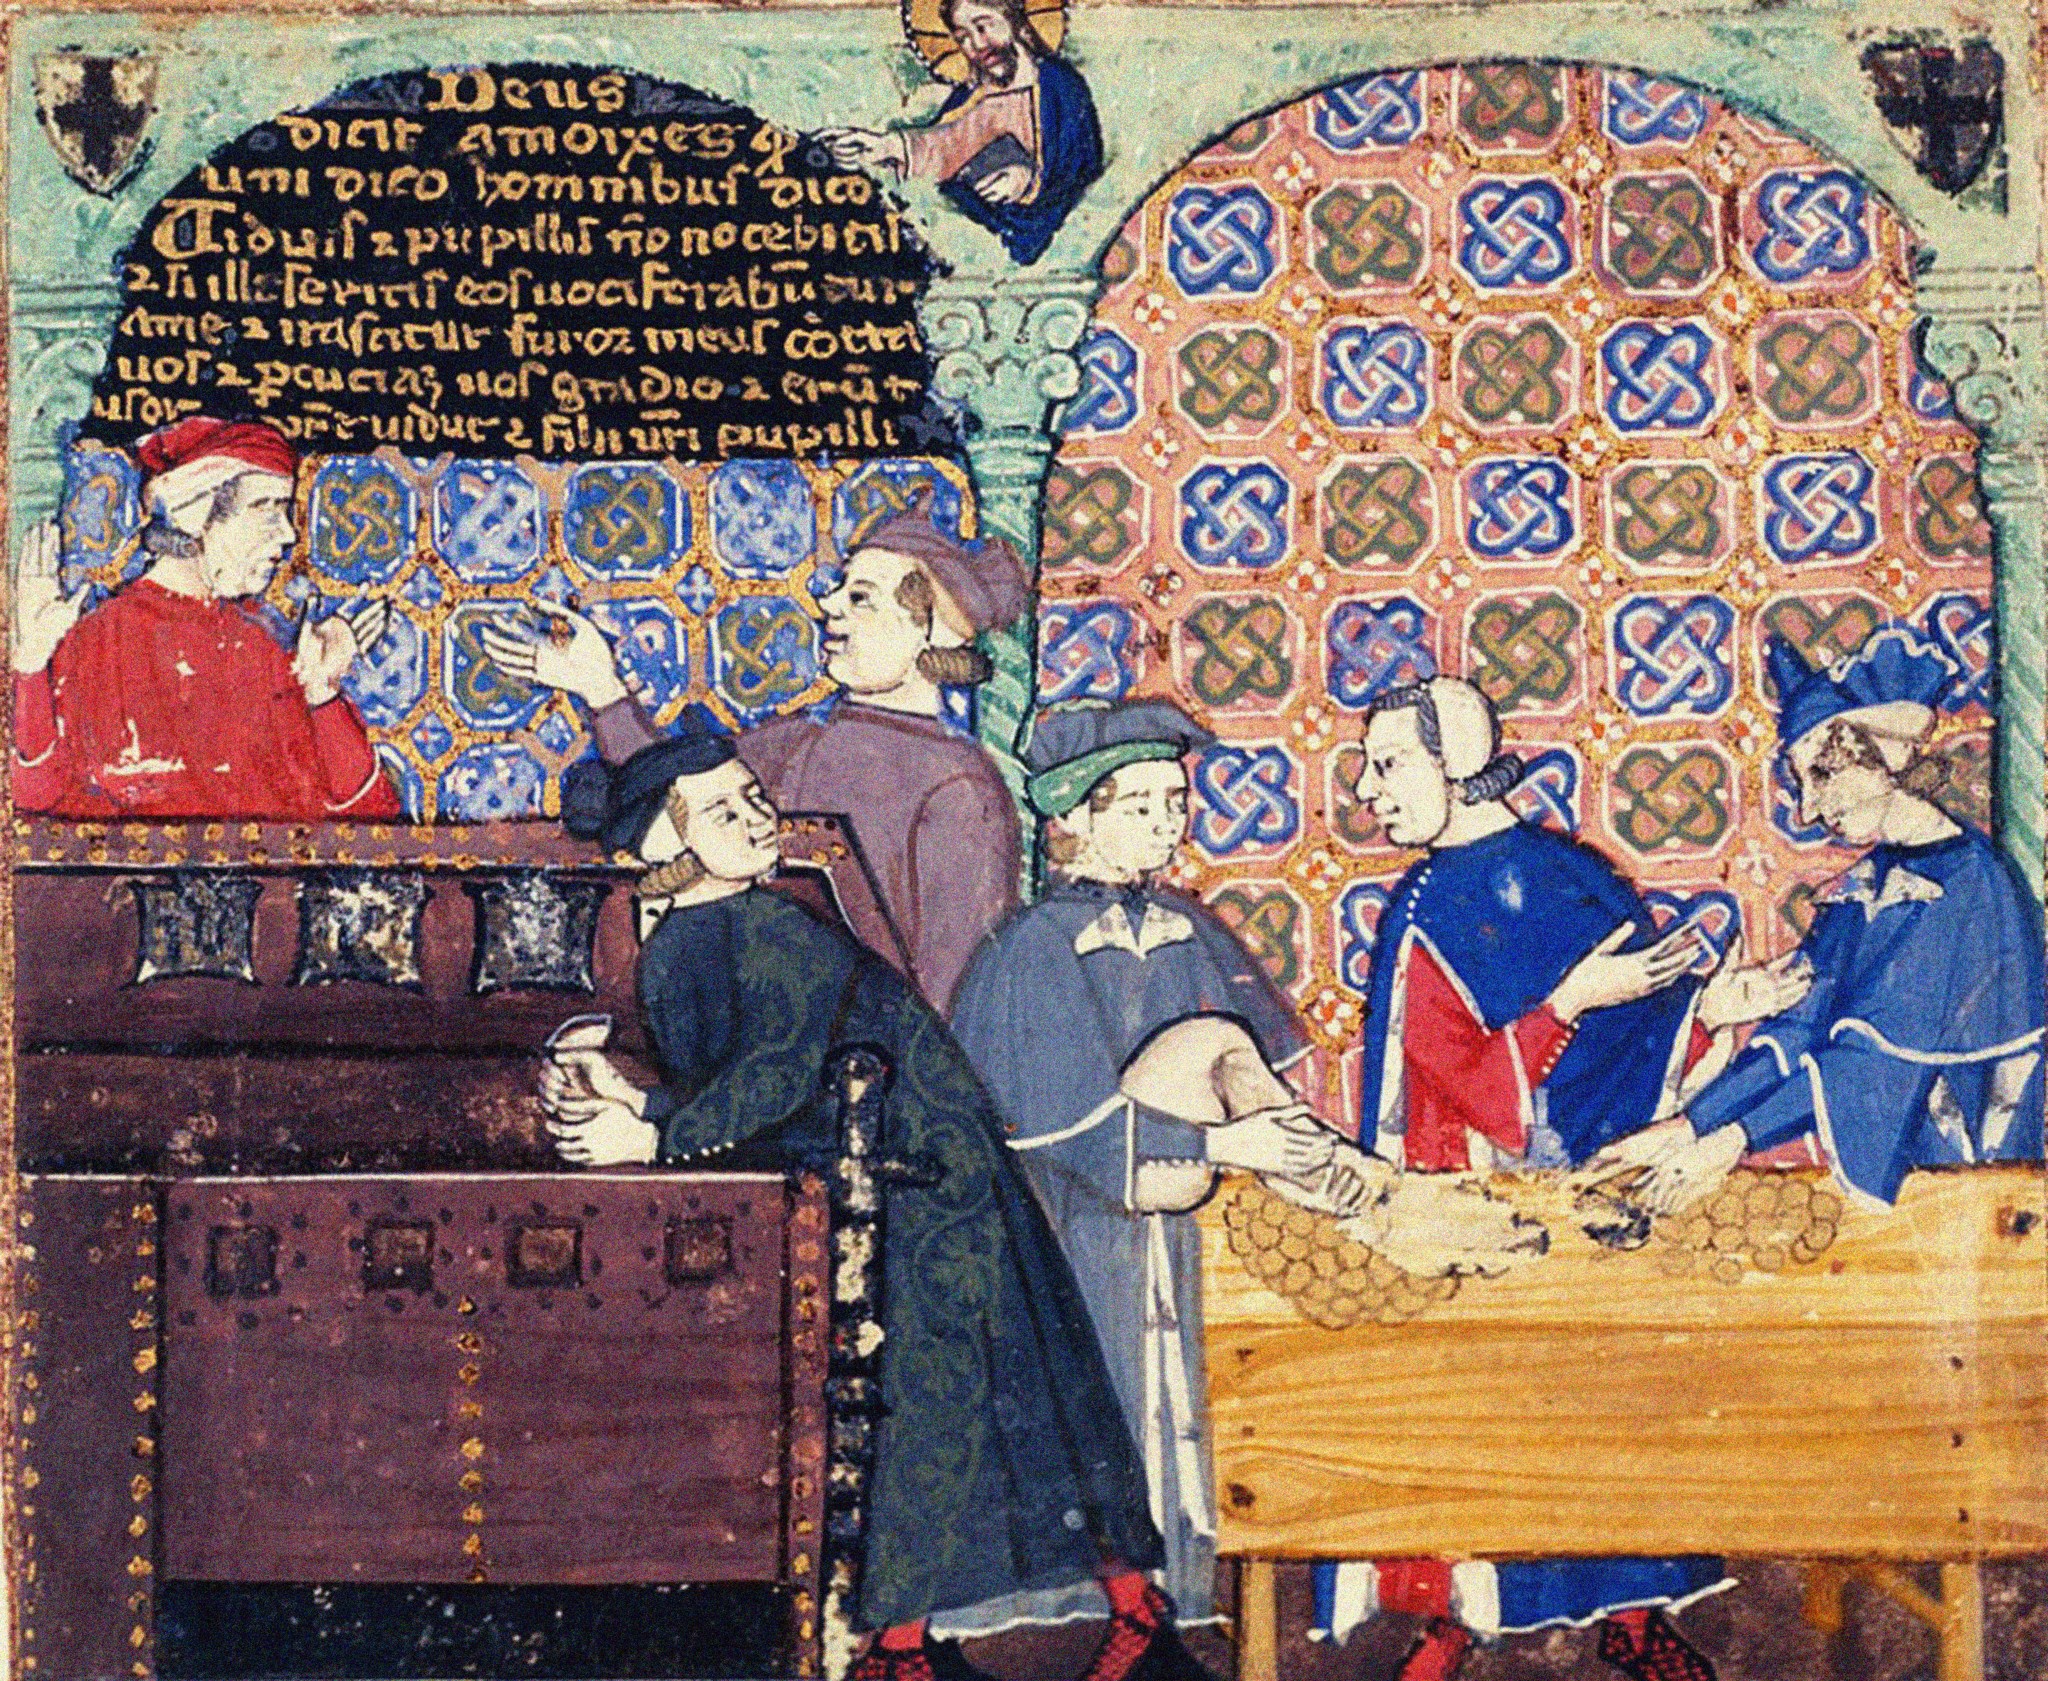 Deus
dicit amoixes ꝙ
uni dico hominibus dico
Uiduis ⁊ pupillis nō nocebitis
⁊ si illeseritis eos uociferabūtur
ame ⁊ irascitur furor meus cōtra
uos ⁊ ꝑcuciaꝫ uos gladio ⁊ erūt
uidue ⁊ filii ur̄i pupilli